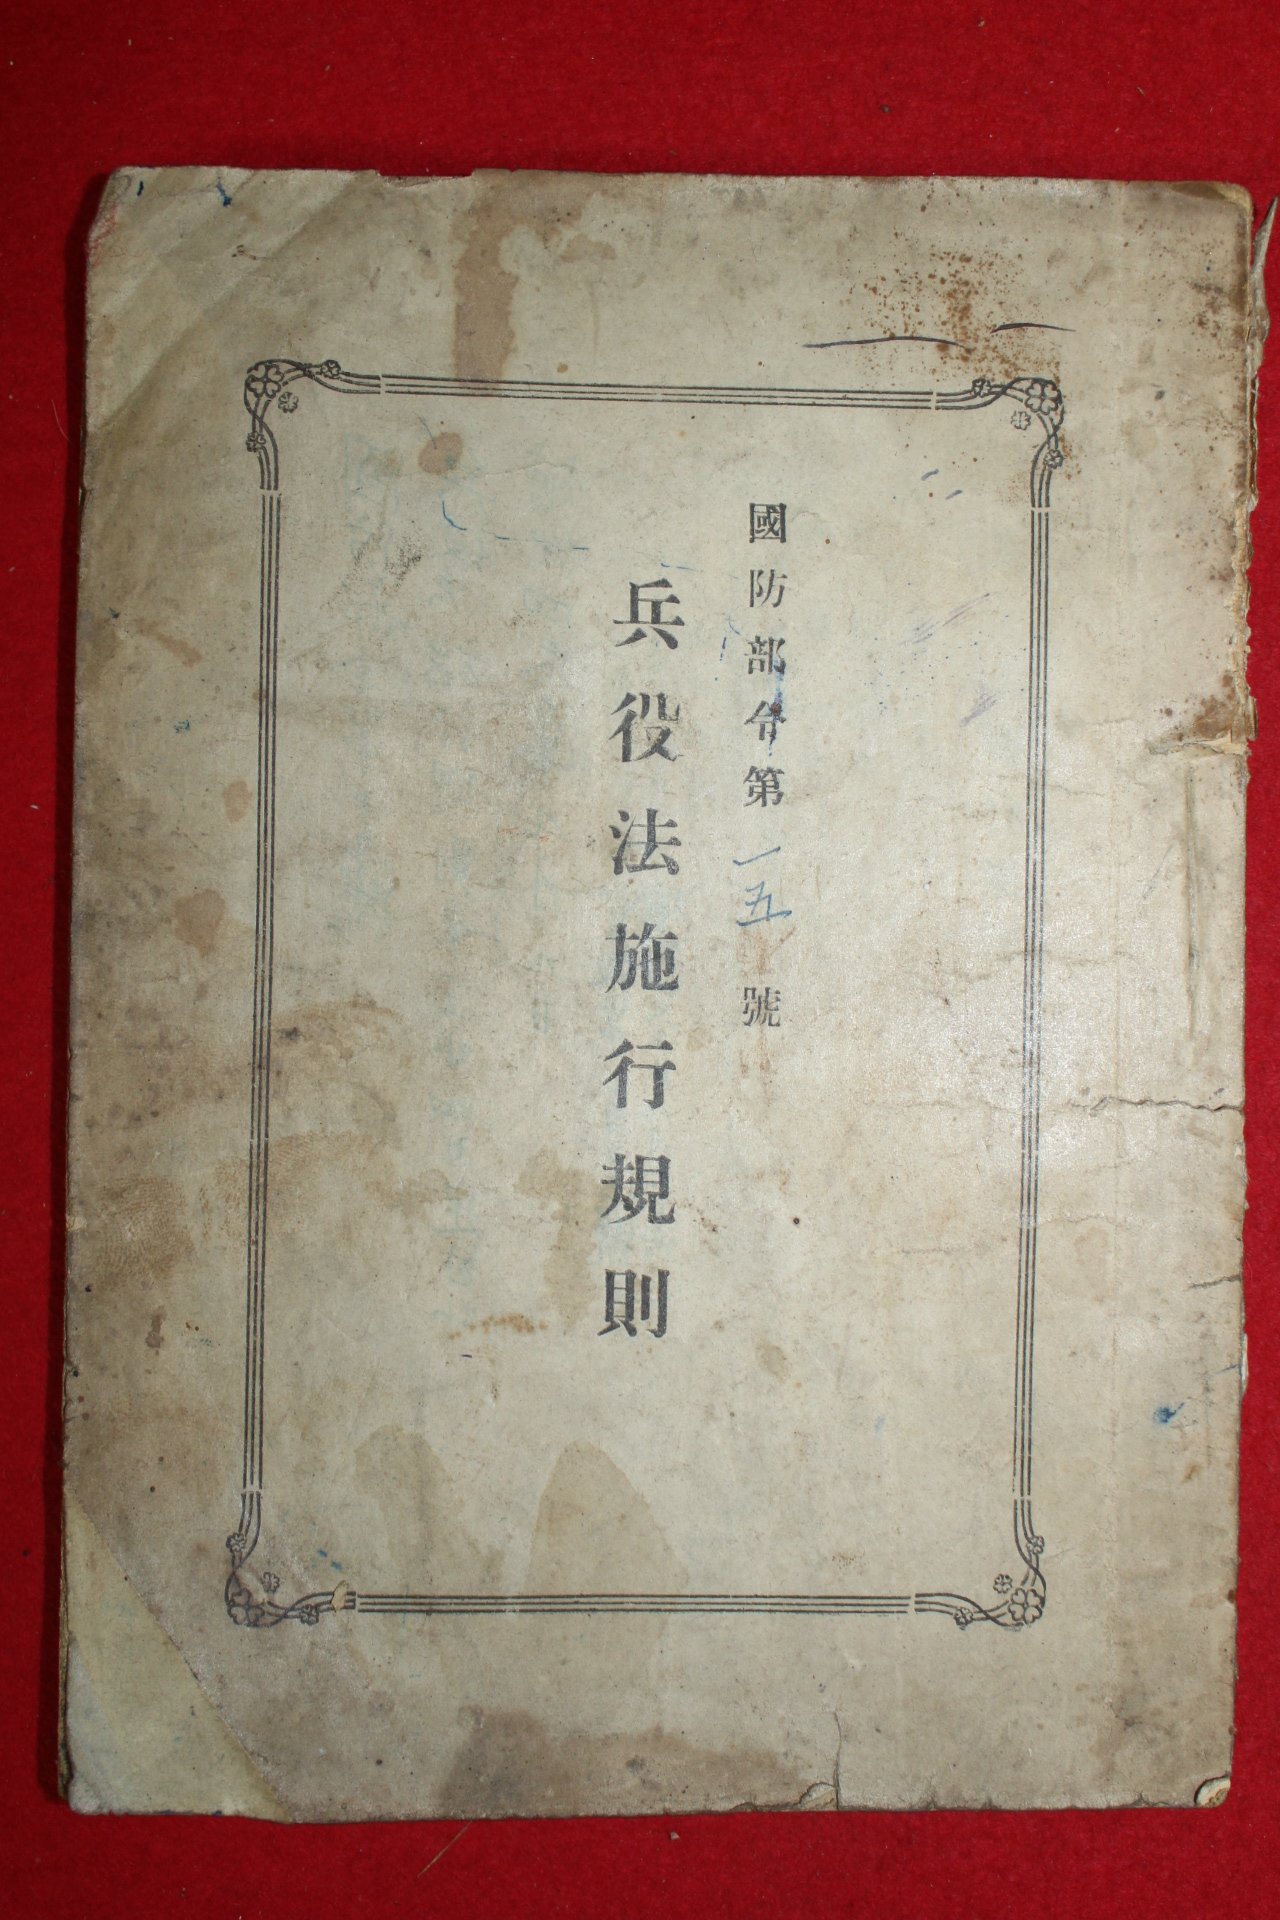 國防部令第一五號
兵役法施行規則